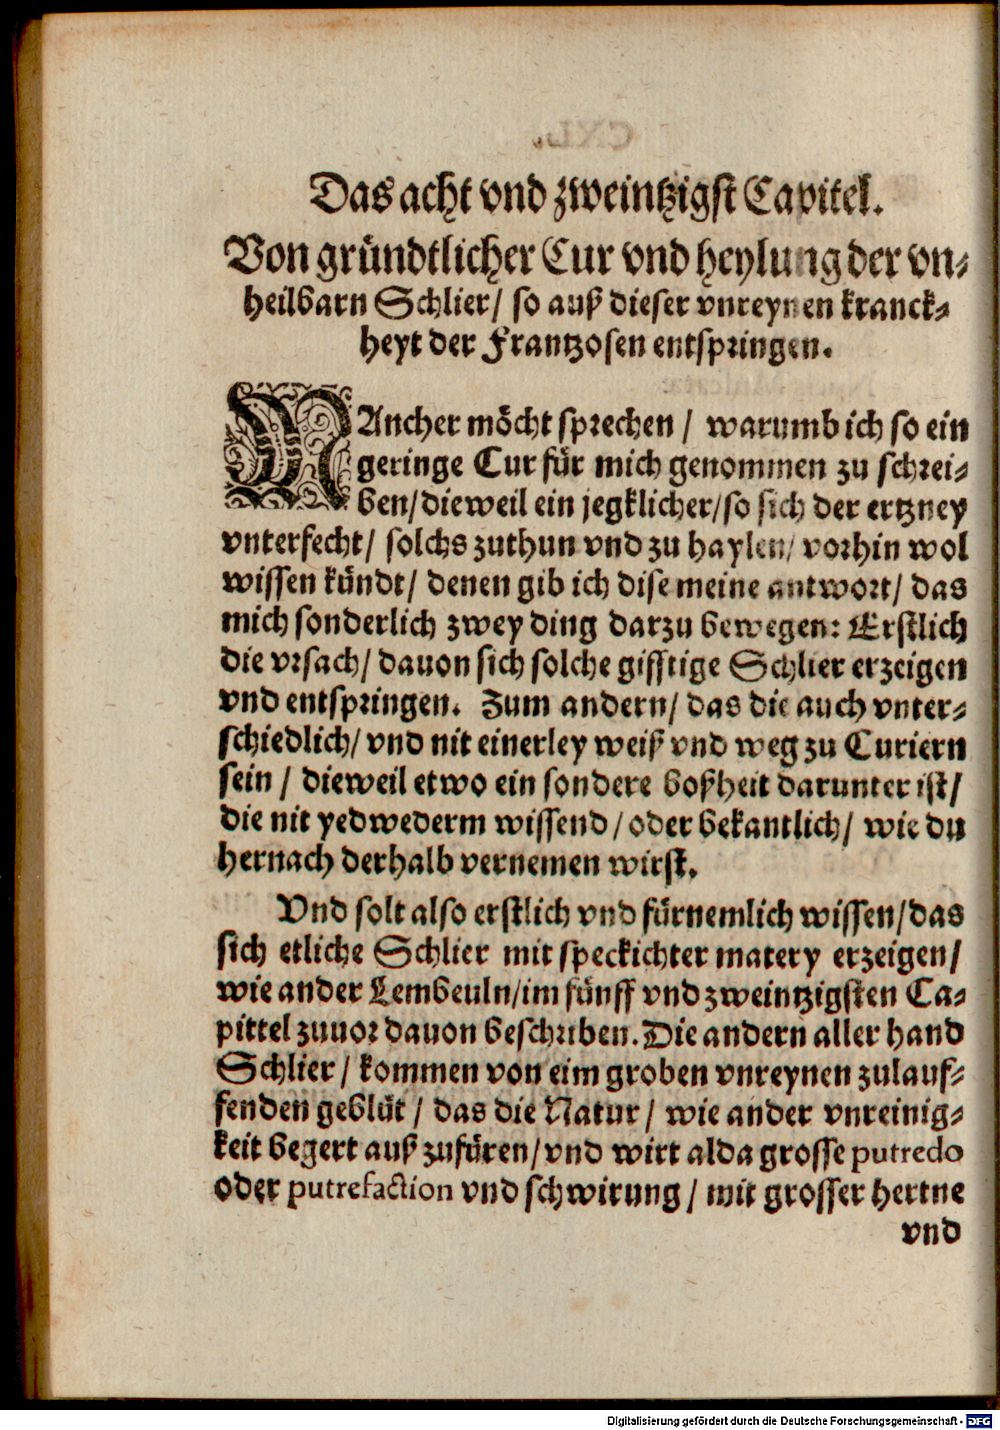 Das acht vnd zweintzigst Capitel.
Von gründtlicher Cur vnd heylung der vn⸗
heilbarn Schlier/ so auß dieser vnreynen kranck⸗
heyt der Frantzosen entspringen.
MAncher möcht sprechen / warumb ich so ein
geringe Cur für mich genommen zu schrei⸗
ben/dieweil ein jegklicher/so sich der ertzney
vnterfecht/ solchs zuthun vnd zu haylen/ vorhin wol
wissen kündt/ denen gib ich dise meine antwort/ das
mich sonderlich zwey ding darzu bewegen: Erstlich
die vrsach/ dauon sich solche gifftige Schlier erzeigen
vnd entspringen. Zum andern/ das die auch vnter⸗
schiedlich/ vnd nit einerley weiß vnd weg zu Curiern
sein / dieweil etwo ein sondere boßheit darunter ist/
die nit yedwederm wissend/oder bekantlich/ wie du
hernach derhalb vernemen wirst.
Vnd solt also erstlich vnd fürnemlich wissen/das
sich etliche Schlier mit speckichter matery erzeigen/
wie ander Lembeuln/im fünff vnd zweintzigsten Ca⸗
pittel zuuor dauon beschriben. Die andern aller hand
Schlier/ kommen von eim groben vnreynen zulauf⸗
fenden geblüt / das die Natur/ wie ander vnreinig⸗
keit begert auß zufüren/vnd wirt alda grosse putredo
oder putrefaction vnd schwirung/ mit grosser hertne
vnd
Digitalisierung gefördert durch die Deutsche Forschungsgemeinschaft - DFG